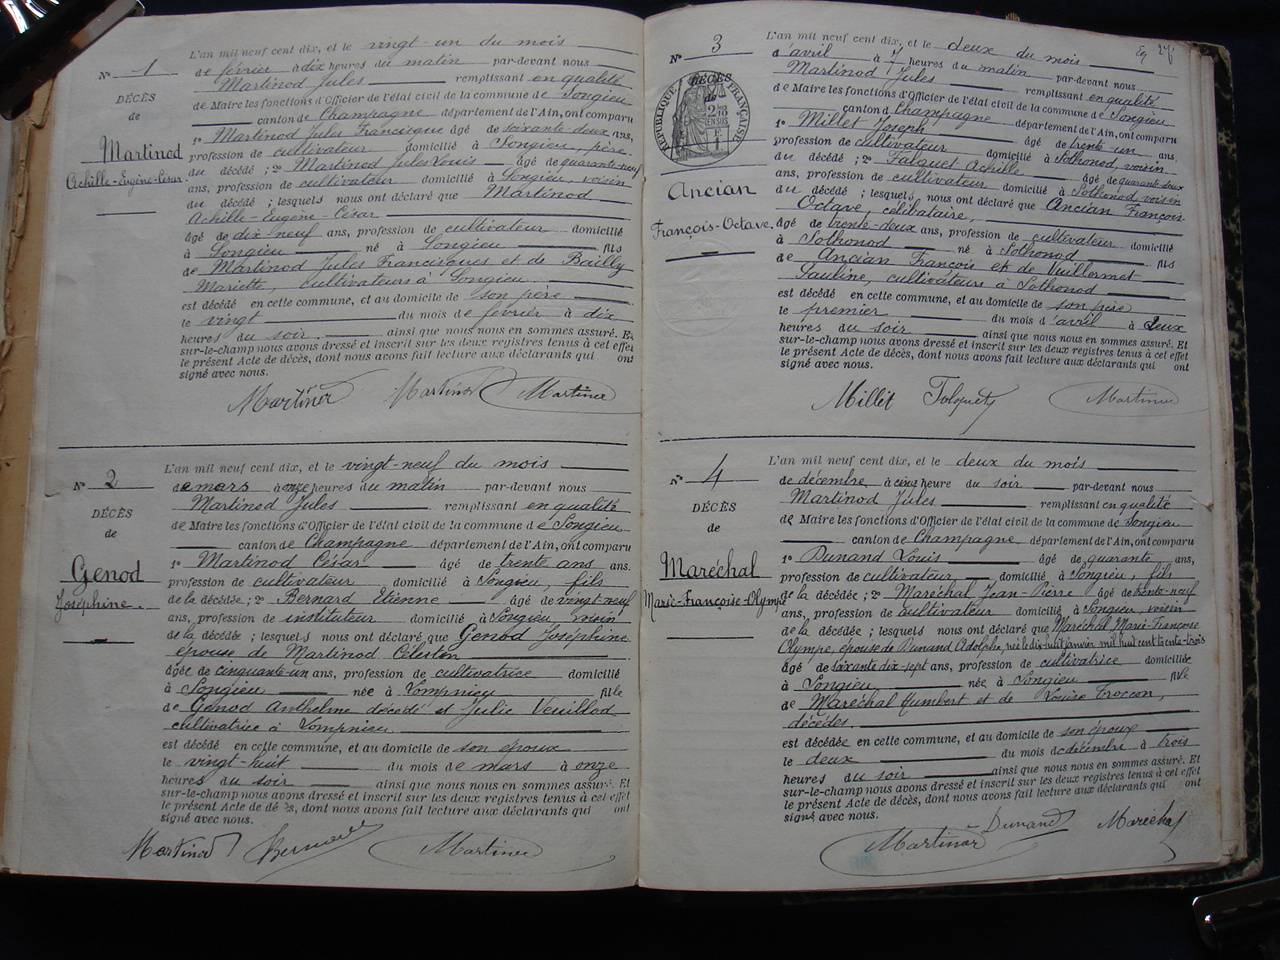 N° 1
DÉCÈS
de
Martinod
Achille-Eugène-César
L'an mil neuf cent dix, et le vingt-un du mois
de février à dix heures du matin par-devant nous
Martinod Jules remplissant en qualité
de Maire les fonctions d'Officier de l'état civil de la commune de Songieu
canton de Champagne département de l'Ain, ont comparu
1° Martinod Jules Francisque âgé de soixante-deux ans,
profession de cultivateur domicilié à Songieu, père
du décédé ; 2° Martinod Jules Louis âgé de quarante-neuf
ans, profession de cultivateur domicilié à Songieu, voisin
du décédé ; lesquels nous ont déclaré que Martinod
Achille-Eugène-César
âgé de dix neuf ans, profession de cultivateur domicilié
à Songieu né à Songieu fils
de Martinod Jules Francisques et de Bailly
Mariette, cultivateurs à Songieu
est décédé en cette commune, et au domicile de son père
le vingt du mois de février à dix
heures du soir ainsi que nous nous en sommes assuré. Et
sur-le-champ nous avons dressé et inscrit sur les deux registres tenus à cet effet
le présent Acte de décès, dont nous avons fait lecture aux déclarants qui ont
signé avec nous.
Martinod Martinod Martinod
N° 2
DÉCÈS
de
Genod
Joséphine.
L'an mil neuf cent dix, et le vingt-neuf du mois
de mars à onze heures du matin par-devant nous
Martinod Jules remplissant en qualité
de Maire les fonctions d'Officier de l'état civil de la commune de Songieu
canton de Champagne département de l'Ain, ont comparu
1° Martinod César âgé de trente ans ans.
profession de cultivateur domicilié à Songieu, fils
de la décédée ; 2° Bernard Etienne âgé de vingt-neuf
ans, profession de instituteur domicilié à Songieu voisin
de la décédée ; lesquels nous ont déclaré que Genod Joséphine
épouse de Martinod Célestin
âgée de cinquante-un ans, profession de cultivatrice domiciliée
à Songieu née à Lompnieu fille
de Genod Anthelme décédé et Julie Veuillod
cultivatrice à Lompnieu
est décédé en cette commune, et au domicile de son époux
le vingt-huit du mois de mars à onze
heures du soir ainsi que nous nous en sommes assuré. Et
sur-le-champ nous avons dressé et inscrit sur les deux registres tenus à cet effet
le présent Acte de décès, dont nous avons fait lecture aux déclarants qui ont
signé avec nous.
Martinod Bernard Martinod
N° 3
RÉPUBLIQUE FRANÇAISE
DÉCÈS
de
Ancian
François-Octave.
L'an mil neuf cent dix, et le deux du mois
d'avril à heures du matin par-devant nous
Martinod Jules remplissant en qualité
de Maire les fonctions d'Officier de l'état civil de la commune de Songieu
canton de Champagne département de l'Ain, ont comparu
1° Millet Joseph âgé de trente-un ans.
profession de cultivateur domicilié à Sothonod, voisin
du décédé ; 2° Falquet Achille âgé de quarante-deux
ans, profession de cultivateur domicilié à Sothonod, voisin
du décédé ; lesquels nous ont déclaré que Ancian François
Octave, célibataire,
âgé de trente-deux ans, profession de cultivateur domicilié
à Sothonod né à Sothonod fils
de Ancian François et de Vuillermet
Pauline, cultivateurs à Sothonod
est décédé en cette commune, et au domicile de son père
le premier du mois d'avril à deux
heures du soir ainsi que nous nous en sommes assuré. Et
sur-le-champ nous avons dressé et inscrit sur les deux registres tenus à cet effet
le présent Acte de décès, dont nous avons fait lecture aux déclarants qui ont
signé avec nous.
Millet Falquet Martinod
N° 4
DÉCÈS
de
Maréchal
Marie-Françoise-Olympe
L'an mil neuf cent dix, et le deux du mois
de décembre à cinq heure du soir par-devant nous
Martinod Jules remplissant en qualité
de Maire les fonctions d'Officier de l'état civil de la commune de Songieu
canton de Champagne département de l'Ain, ont comparu
1° Dunand Louis âgé de quarante ans,
profession de cultivateur domicilié à Songieu, fils
de la décédée ; 2° Maréchal Jean-Pierre âgé de trente-neuf
ans, profession de cultivateur domicilié à Songieu, voisin
de la décédée ; lesquels nous ont déclaré que Maréchal Marie-Françoise
Olympe, épouse de Dunand Adolphe, née le dix huit janvier mil huit cent trente-trois
âgée de soixante dix-sept ans, profession de cultivatrice domiciliée
à Songieu née à Songieu fille
de Maréchal Humbert et de Louise Troccon,
décédés.
est décédée en cette commune, et au domicile de son époux
le deux du mois de décembre à trois
heures du soir ainsi que nous nous en sommes assuré. Et
sur-le-champ nous avons dressé et inscrit sur les deux registres tenus à cet effet
le présent Acte de décès, dont nous avons fait lecture aux déclarants qui ont
signé avec nous.
Martinod Dunand Maréchal